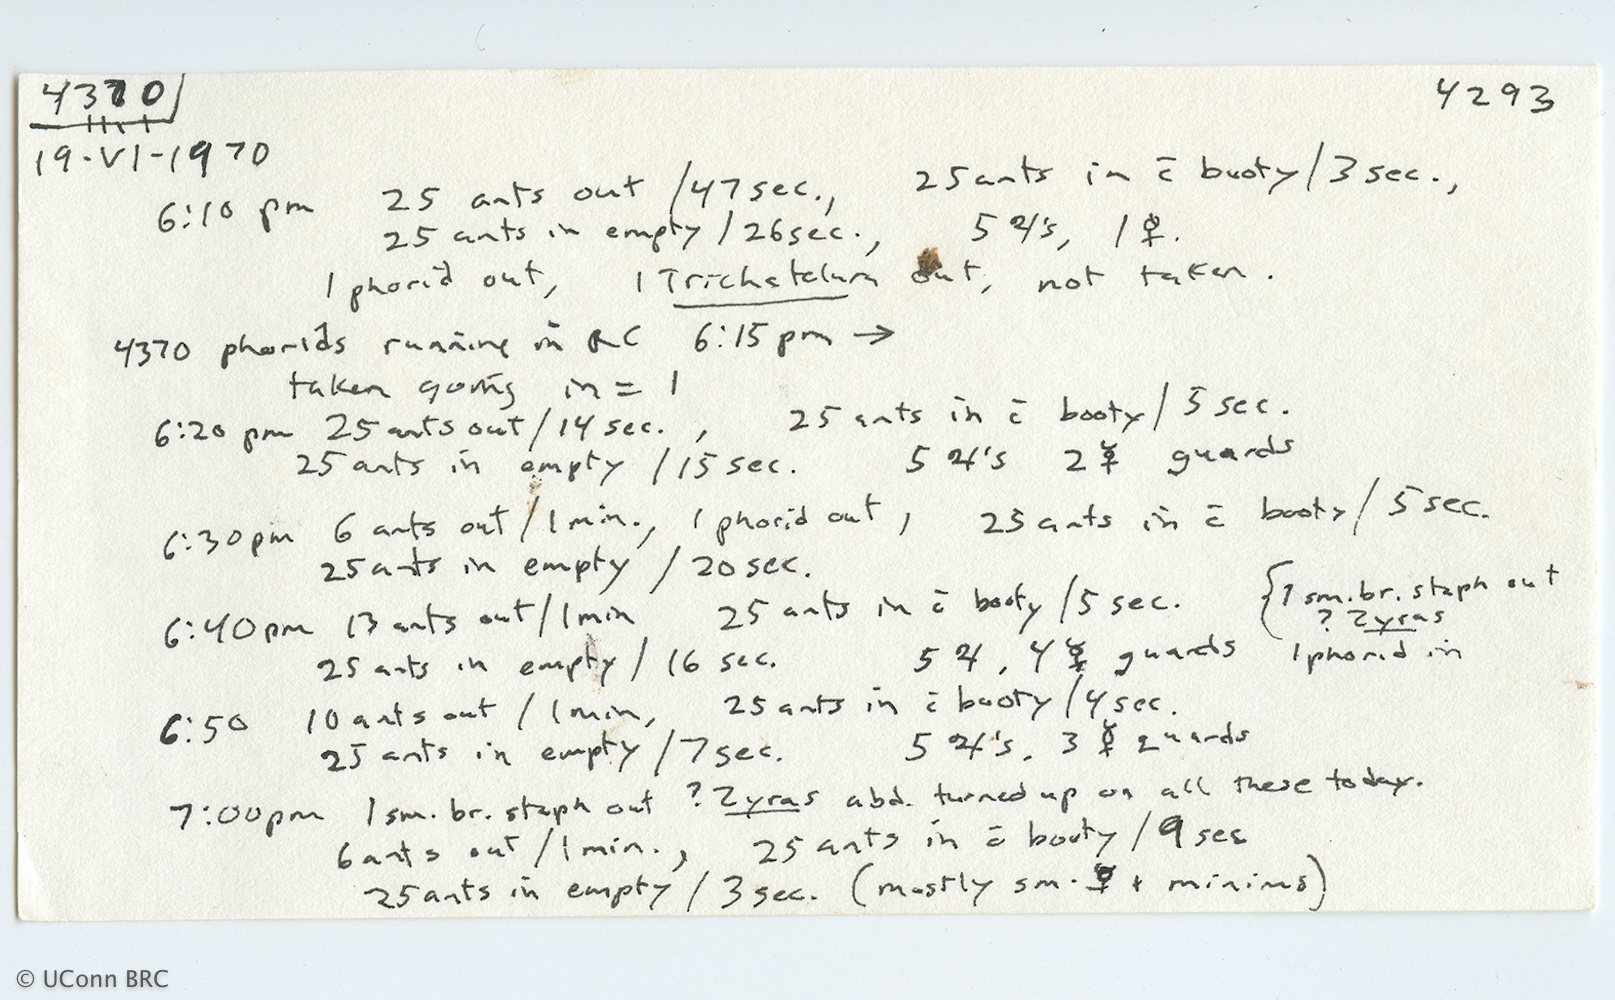 4370 4293
19-VI-1970
6:10 pm 25 ants out /47sec., 25 ants in c̄ booty/3 sec.,
25 ants in empty/26sec., 5 ♃'s, 1 ☿.
1 phorid out, 1 Trichatelura out, not taken.
4370 phorids running in RC 6:15 pm →
taken going in = 1
6:20 pm 25 ants out/14 sec., 25 ants in c̄ booty/5 sec.
25 ants in empty /15 sec. 5 ♃'s 2 ☿ guards
6:30pm 6 ants out/1 min., 1 phorid out, 25 ants in c̄ booty/5 sec.
25 ants in empty /20 sec.
6:40pm 13 ants out/1min 25 ants in c̄ booty/5 sec. {1 sm.br. staph out
? Zyras
25 ants in empty/16 sec. 5 ♃, 4 ☿ guards 1 phorid in
6:50 10 ants out /1min, 25 ants in c̄ booty/4 sec.
25 ants in empty/7sec. 5 ♃'s, 3 ☿ guards
7:00pm 1 sm. br. staph out ? Zyras abd. turned up on all these today.
6 ants out/1 min., 25 ants in c̄ booty/9 sec
25 ants in empty/3 sec. (mostly sm. ☿ + minims)
© UConn BRC